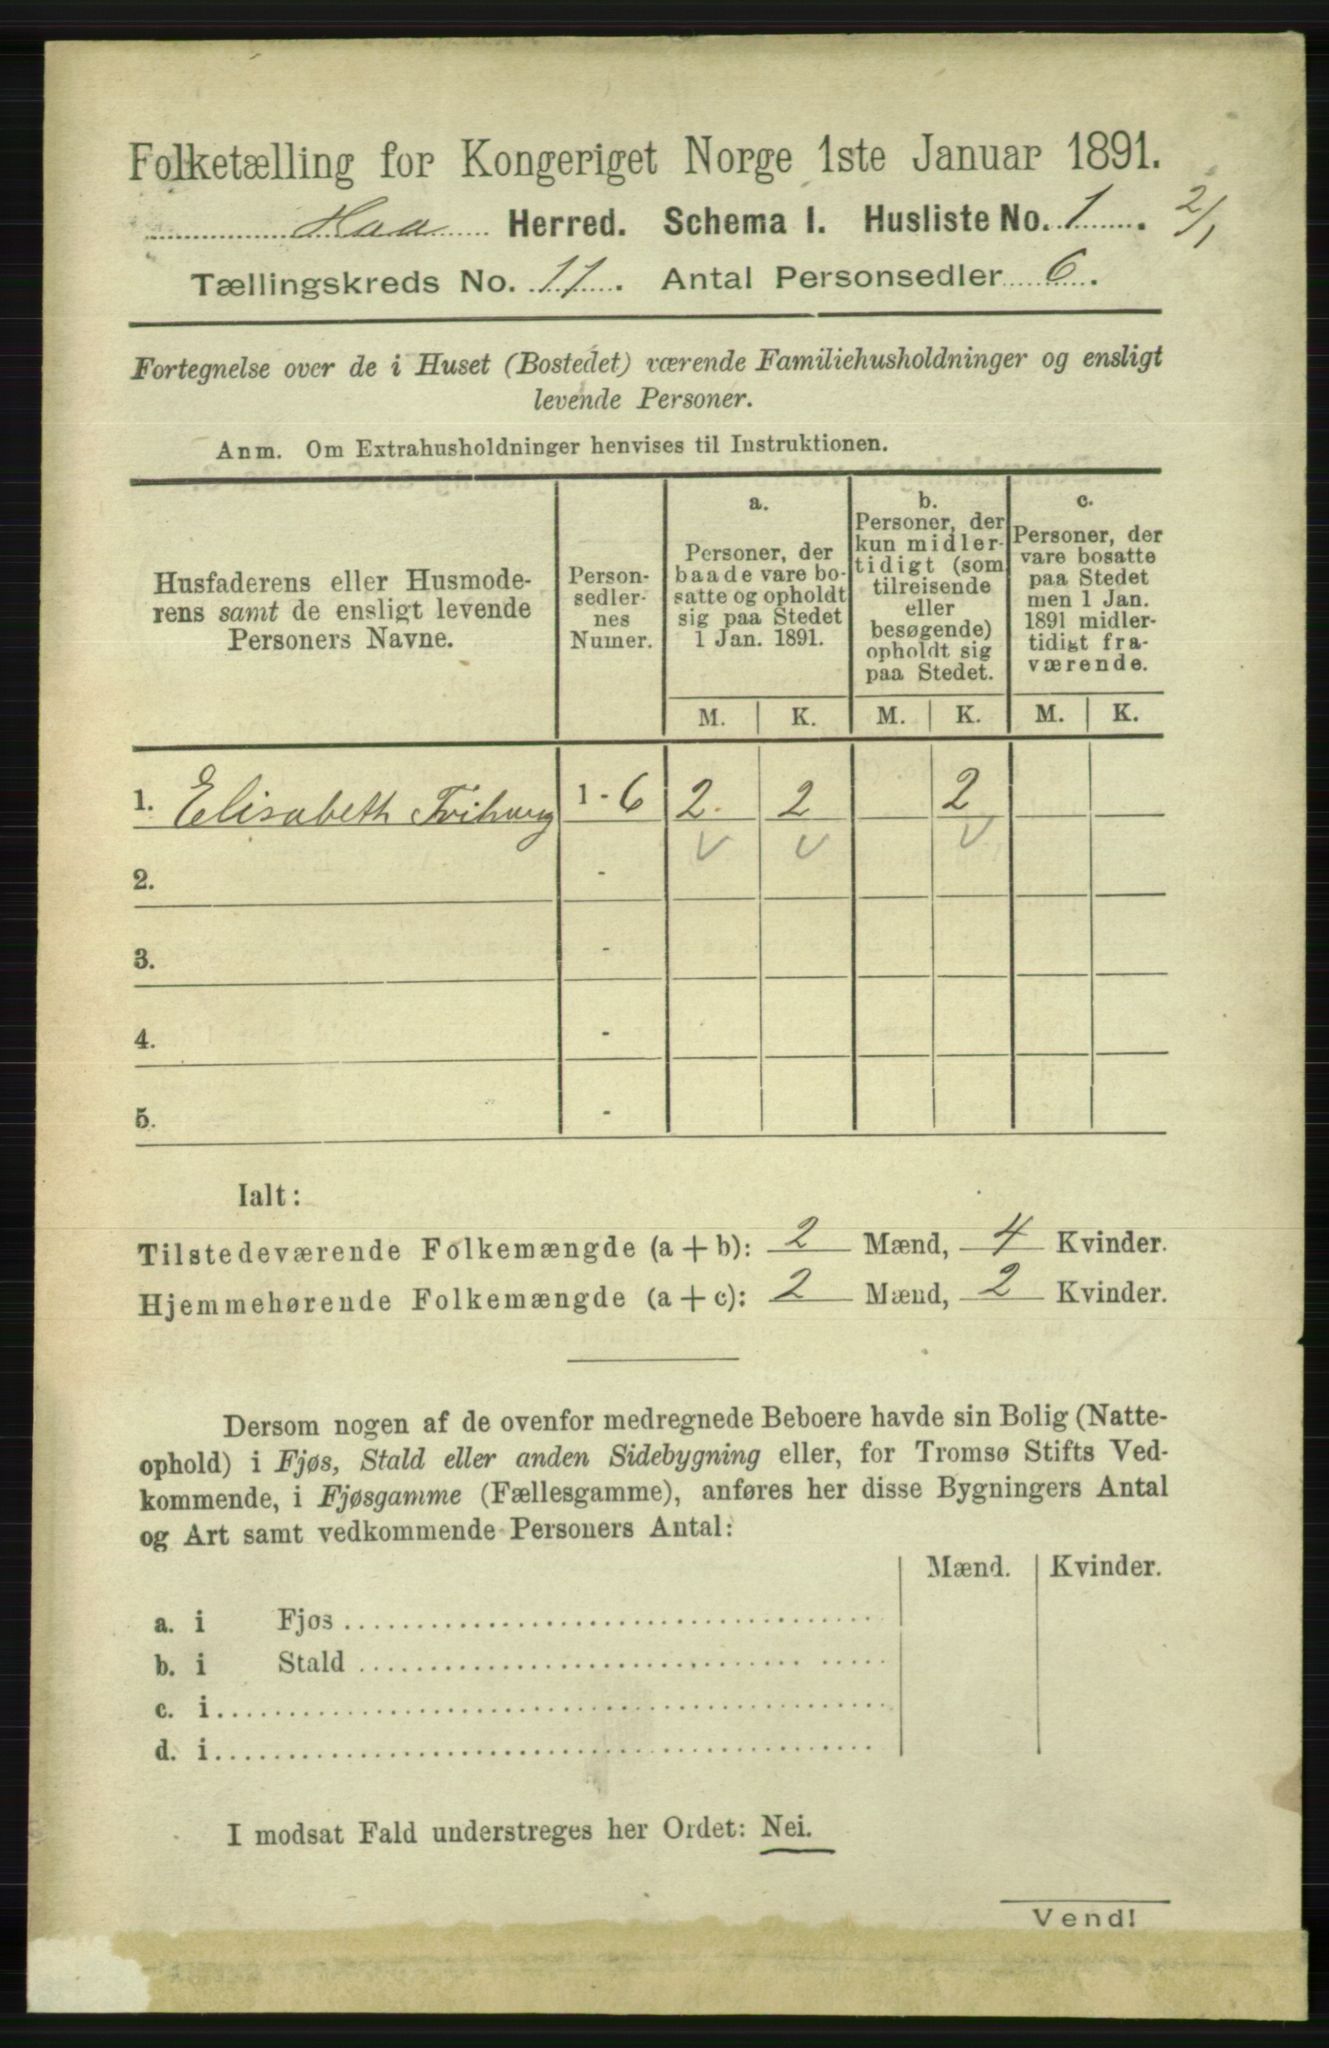 Folketælling for Kongeriget Norge 1ste Januar 1891.
Haa Herred. Schema I. Husliste No. 1. 2/1
Tællingskreds No. 11. Antal Personsedler 6.
Fortegnelse over de i Huset (Bostedet) værende Familiehusholdninger og ensligt
levende Personer.
Anm. Om Extrahusholdninger henvises til Instruktionen.
Husfaderens eller Husmode-
rens samt de ensligt levende
Personers Navne.
Person-
sedler-
nes
Numer.
a.
Personer, der
baade vare bo-
satte og opholdt
sig paa Stedet
1 Jan. 1891.
b.
Personer, der
kun midler-
tidigt (som
tilreisende
eller
besøgende)
opholdt sig
paa Stedet.
c.
Personer, der
vare bosatte
paa Stedet
men 1 Jan.
1891 midler-
tidigt fra-
værende.
M. K. M. K. M. K.
1. Elisabeth 1 - 6 2 2 2
2. -
3. -
4. -
5. -
Ialt:
Tilstedeværende Folkemængde (a + b): 2 Mænd, 4 Kvinder.
Hjemmehørende Folkemængde (a + c): 2 Mænd, 2 Kvinder.
Dersom nogen af de ovenfor medregnede Beboere havde sin Bolig (Natte-
ophold) i Fjøs, Stald eller anden Sidebygning eller, for Tromsø Stifts Ved-
kommende, i Fjøsgamme (Fællesgamme), anføres her disse Bygningers Antal
og Art samt vedkommende Personers Antal:
Mænd. Kvinder.
a. i Fjøs
b. i Stald
c. i
d. i
I modsat Fald understreges her Ordet: Nei.
Vend!